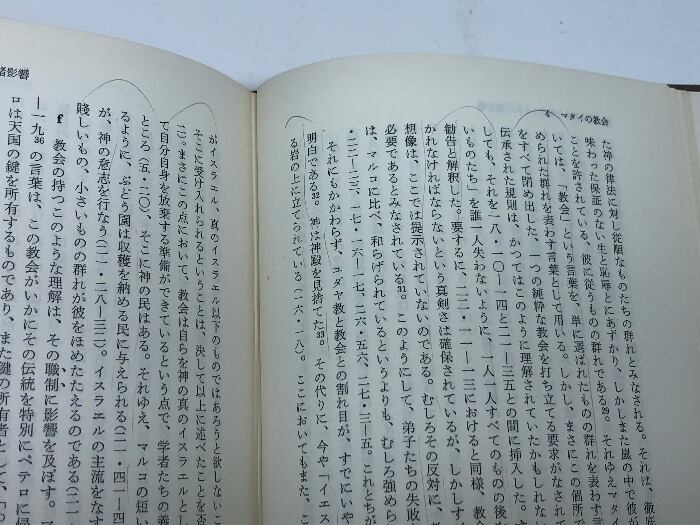 4 マタイの教会
た神の律法に対し従順なものたちの群れとみなされる。それは、徹
味わった保証のない生と恥辱とにあずかり、しかしまた嵐の中で彼が
ことを許されている、彼に従うものの群れである29。それゆえマタ
いては、「教会」という言葉を、単に選ばれたものの群れを表わす
められた群れを表わす言葉として用いる。しかし、まさにこの個所で
をすべて閉め出した、一つの純粋な教会を打ち立てる要求がなされて
伝承された規則は、かつてはこのように理解されていたかもしれな
しても、それを一八・一〇―一四と二一―三五との間に挿入した。す
いものたち」を誰一人失わないように、一人一人すべてのものの後め
かれなければならないという真剣さは確保されているが、しかしす
勧告と解釈した。要するに、一三・一一―一三におけると同様、教
想像は、ここでは提示されていないのである。むしろその反対に、
必要であるとみなされている31。このようにして、弟子たちの失敗
は、マルコに比べ、和らげられているというよりも、むしろ強めら
・二二―二三、一七・一六―一七、二六・五六、二七・三―五。これとちが
それにもかかわらず、ユダヤ教と教会との割れ目が、すでにいや
明白である32。神は神殿を見捨てた33。その代りに、今や「イエス
る岩の上に立てられている(一六・一八)。ここにおいてもまた、こ
者影響
がイスラエル、真のイスラエル以下のものではあろうと欲しないこ
二)。まさにこの点において、教会は自らを神の真のイスラエルとし
そこに受け入れられるということは、決して以上に述べたことを否
て自分自身を放棄する準備ができているという点で、学者たちの義
ところ(五・二〇)、そこに神の民はある。それゆえ、マルコの短い
るように、ぶどう園は収穫を納める民に与えられる(二一・四一―四
が、神の意志を行なう(二一・二八―三二)。イスラエルの主流をなす
賤しいもの、小さいものの群れが彼をほめたたえるのである(二一
f 教会の持つこのような理解は、その職制に影響を及ぼす。マ
―一九36の言葉は、この教会がいかにその伝統を特別にペテロに帰
ロは天国の鍵を所有するものであり、また鍵の所有者として、「つ